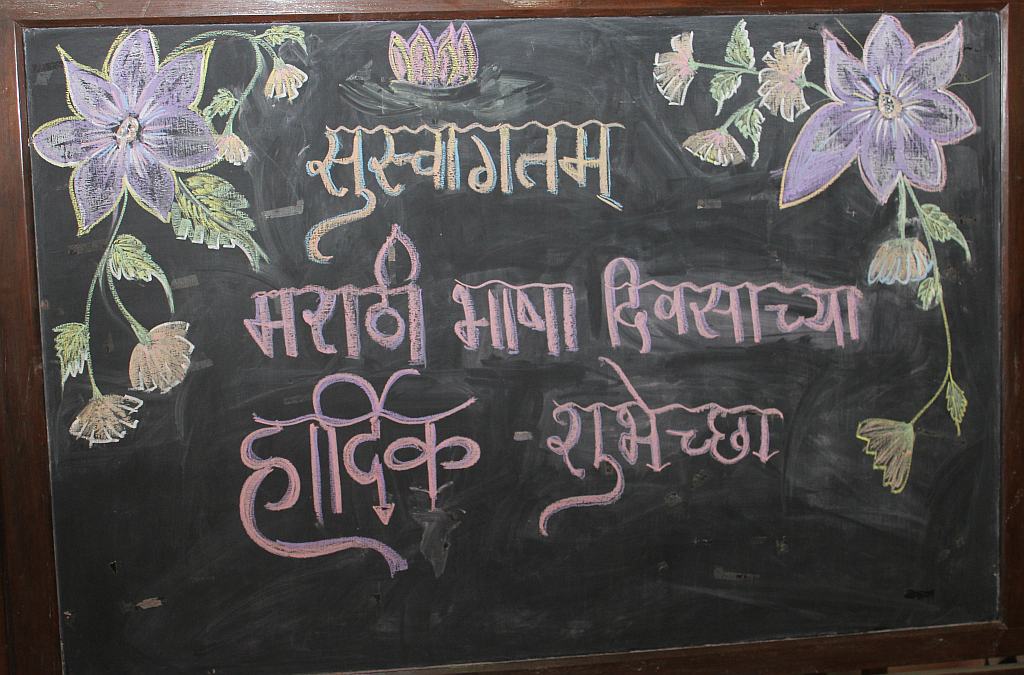 सुस्वागतम्
मराठी भाषा दिवसाच्या
हार्दिक शुभेच्छा